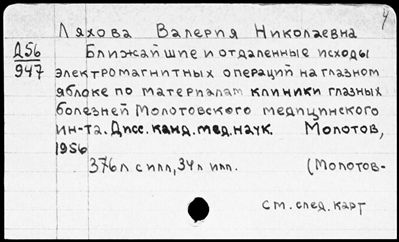 Ляхова Валерия Николаевна
Д56
947
Ближайшие и отдаленные исходы
электромагнитных операций на глазном
яблоке по материалам клиники глазных
болезней Молотовского медицинского
ин-та. Дисс. канд. мед. наук. Молотов,
1956
376л с илл, 34л илл. (Молотов-
см. след. карт